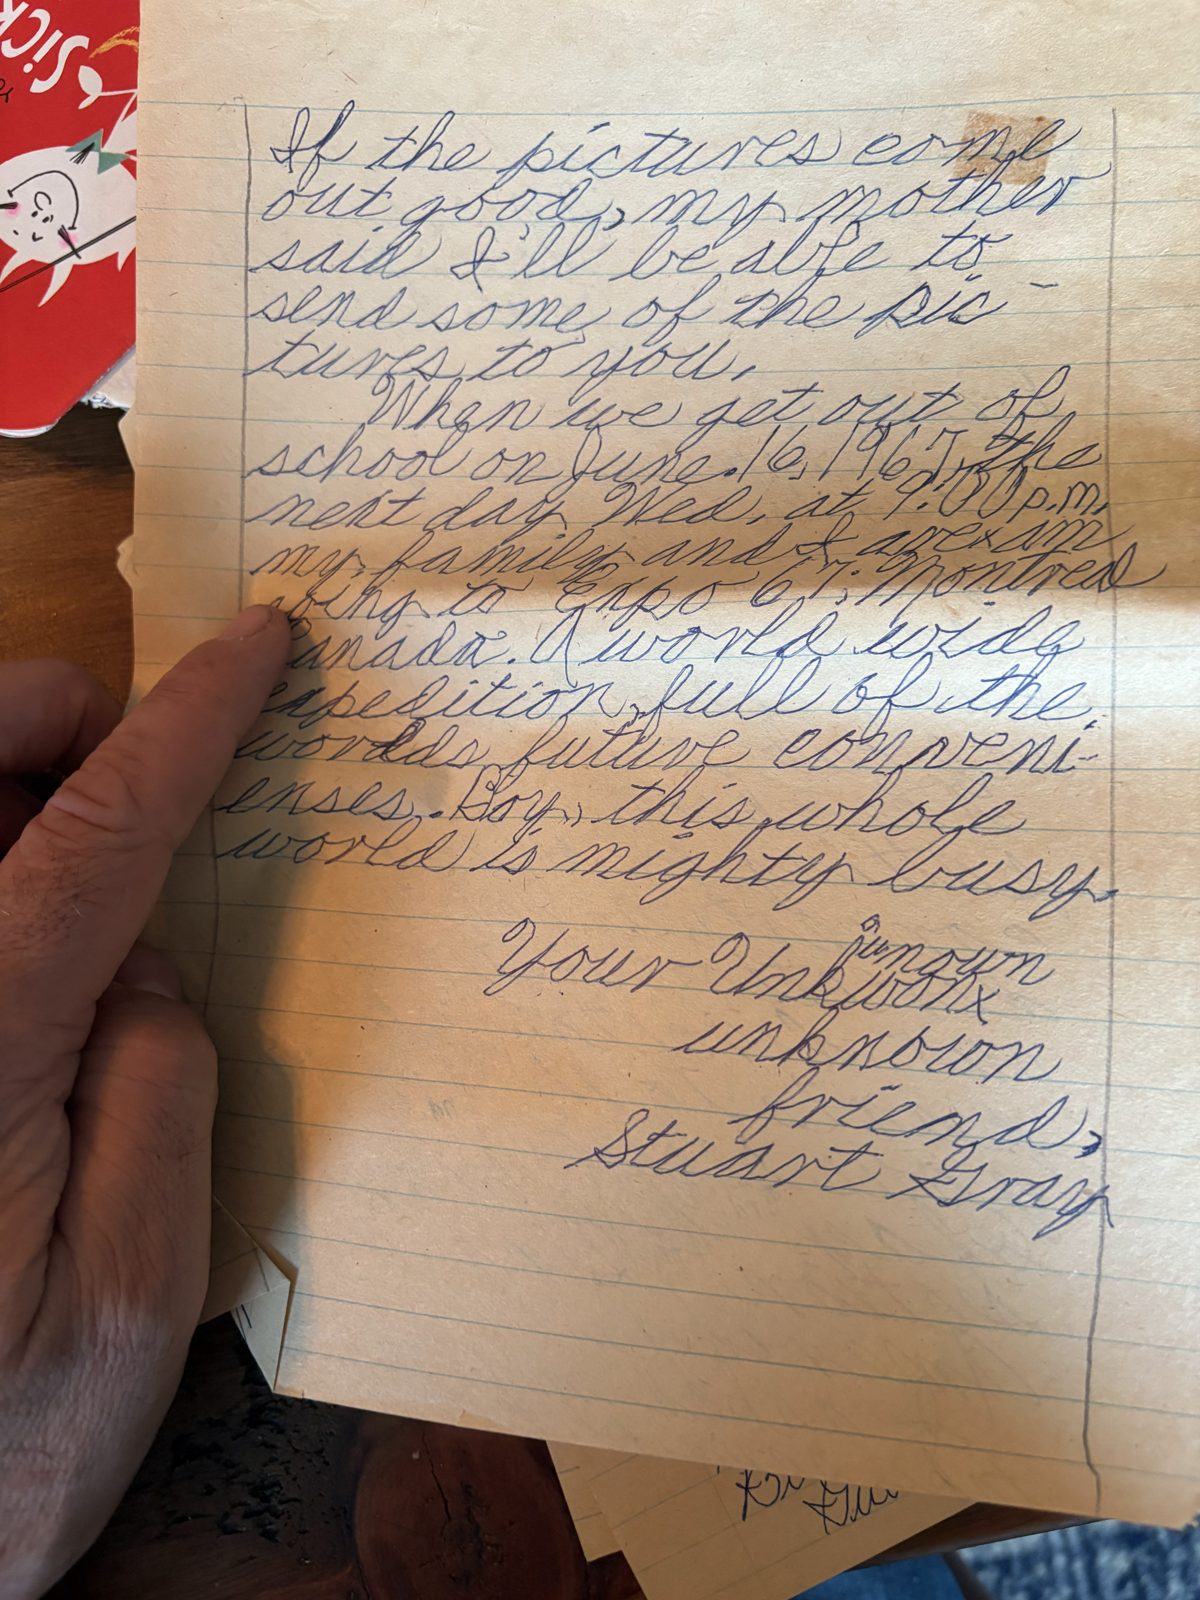 Sick
If the pictures come
out good, my mother
said I'll be able to
send some of the pic-
tures to you.
When we get out of
school on June.16, 1967, the
next day Wed. at 9:00 p.m.
my family and I are
going to Expo 67, Montreal
Canada. A world wide
expedition, full of the
worlds future conveni-
enses. Boy, this whole
world is mighty busy.
Your
unknown
friend,
Stuart Gray